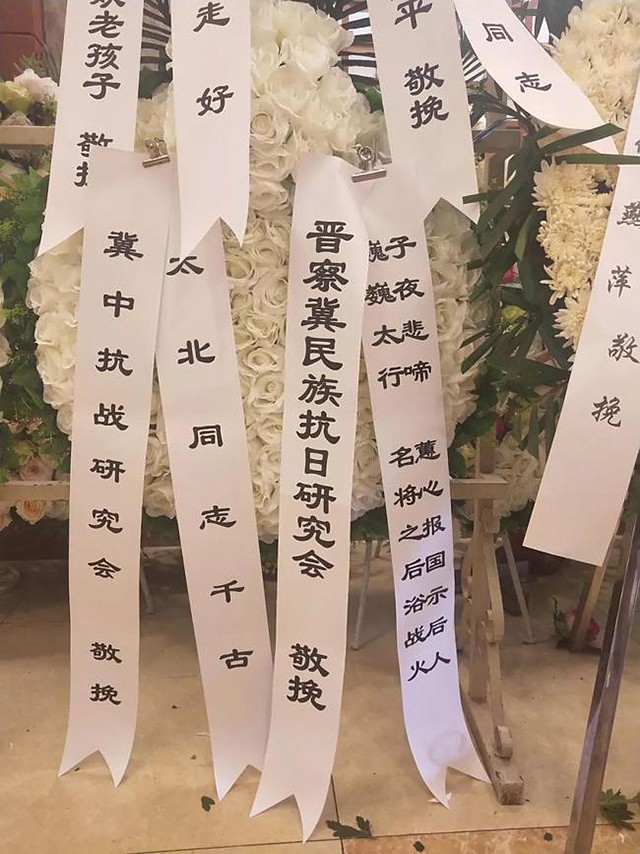 老孩子 敬挽
走好
平 敬挽
同志
冀中抗战研究会 敬挽
太北同志千古
晋察冀民族抗日研究会 敬挽
子夜悲啼 蕙心报国示后人
巍巍太行 名将之后浴战火
燕萍敬挽